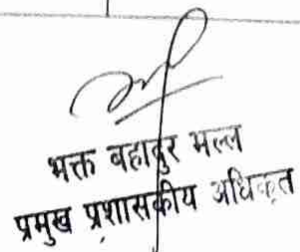 भक्त बहादुर भल्ल
प्रमुख प्रशासकीय अधिकृत